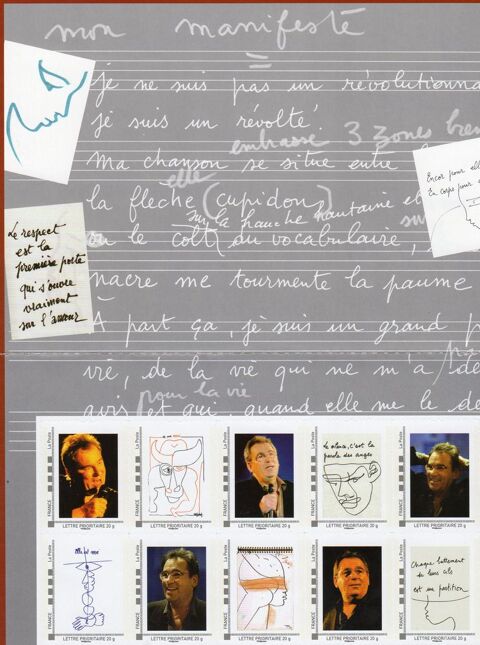 mon manifeste
=
je ne suis pas un révolutionna
je suis un révolté
embrasse 3 zones
Ma chanson se situe entre
elle
la fleche (cupidon)
sur la hanche hautaine
ou le colt du vocabulaire,
nacre me tourmente la paume
À part ça, je suis un grand p
vie, de la vie qui ne m'a
pour la vie
avis et qui quand elle me le de
Le respect
est la
première porte
qui s'ouvre
vraiment
sur l'amour
Encor pour ell
En corps pour
La Poste
FRANCE
LETTRE PRIORITAIRE 20 g
La Poste
FRANCE
LETTRE PRIORITAIRE 20 g
La Poste
FRANCE
LETTRE PRIORITAIRE 20 g
La Poste
Le silence, c'est la
parole des anges
FRANCE
LETTRE PRIORITAIRE 20 g
La Poste
FRANCE
LETTRE PRIORITAIRE 20 g
La Poste
FRANCE
LETTRE PRIORITAIRE 20 g
La Poste
FRANCE
LETTRE PRIORITAIRE 20 g
La Poste
FRANCE
LETTRE PRIORITAIRE 20 g
La Poste
FRANCE
LETTRE PRIORITAIRE 20 g
La Poste
Chaque battement
de leurs cils
est un partition
FRANCE
LETTRE PRIORITAIRE 20 g